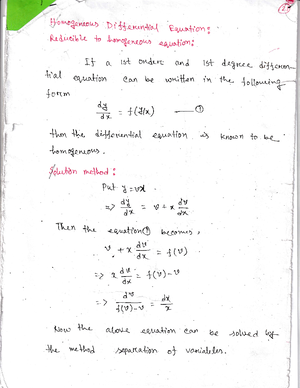 Homogeneous Differential Equation:
Reducible to homogeneous equation:
If a 1st order and 1st degree differen-
tial equation can be written in the following
form
dy/dx = f(y/x) —— ①
then the differential equation is known to be
homogeneous.
Solution method:
Put y = vx
=> dy/dx = v + x dv/dx
Then the equation ① becomes,
v + x dv/dx = f(v)
=> x dv/dx = f(v) - v
=> dv/(f(v) - v) = dx/x
Now the above equation can be solved by
the method separation of variables.